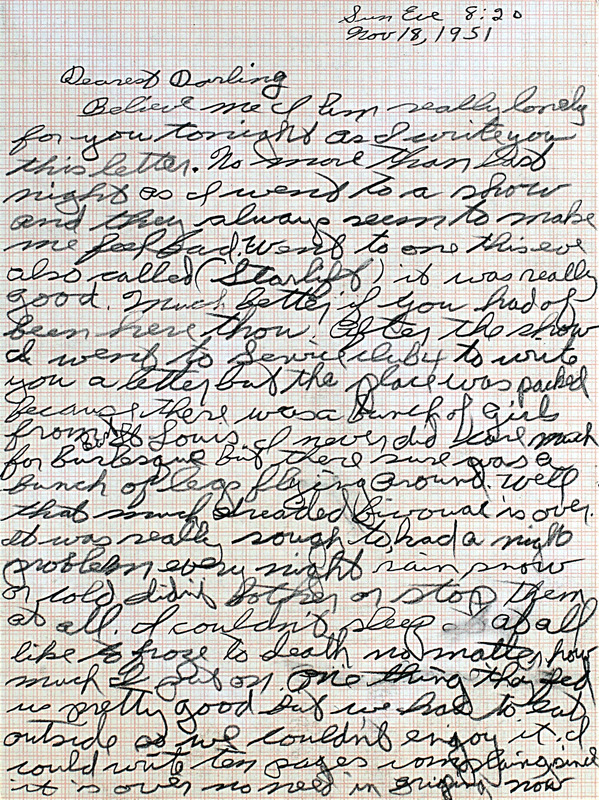 Sun Eve 8:20
Nov 18, 1951
Dearest Darling
Believe me I Em really lonely
for you tonight as I write you
this letter. No more than last
night as I went to a show
and they always seem to make
me feel bad. Went to one this eve
also called (Starlift) it was really
good. Much better if you had of
been here thou. After the show
I went to Service club to write
you a letter but the place was packed
because there was a bunch of girls
from St Louis. I never did care much
for burlesque but there sure was a
bunch of legs flying around. Well
that much dreaded bivouac is over.
It was really rough to, had a night
problem every night rain, snow
or cold didn't bother or stop them
at all. I couldn't sleep at all
like to froze to death no matter how
much I put on. One thing they fed
us pretty good but we had to eat
outside so we couldn't enjoy it. I
could write ten pages complaing since
it is over no need in griping now